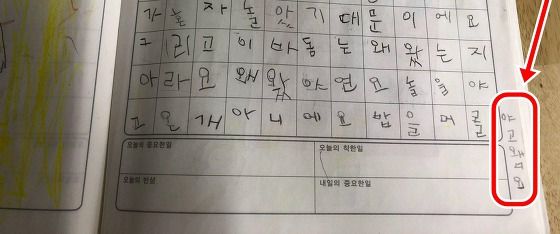 가 놀 자 놀 았 기 대 문 이 에 요
그 리 고 이 바 동 는 왜 왔 는 지
아 라 요 왜 왔 야 연 요 놀 을 야
고 온 개 아 니 에 요 밥 을 머 글
야 고 왔 어 요
오늘의 중요한일 오늘의 착한일
오늘의 반성 내일의 중요한일